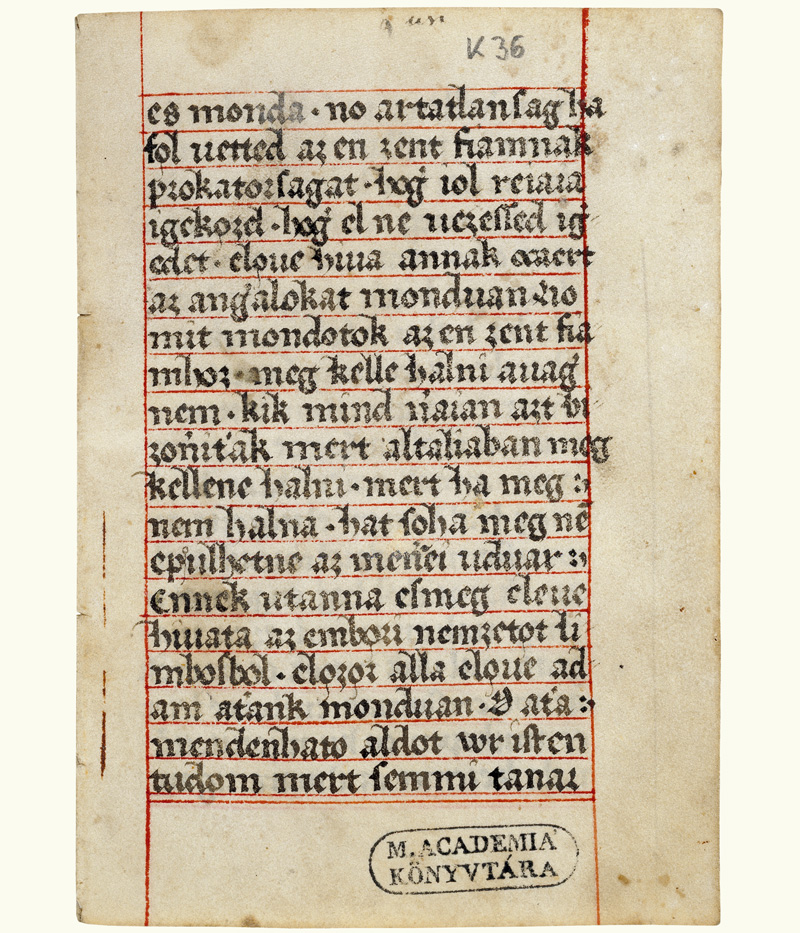 K 36
es monda · no artatlansag ha
fol uetted az en zent fiamnak
prokatorsagat · hog̃ iol reiara
igekozd · hog̃ el ne uezessed ig̃
edet · eloue hiua annak
az ang̃alokat monduan · No
mit mondotok az en zent fia
mhoz · meg kelle halni auag̃
nem · kik mind ñaian azt bi
zoñitak mert altaliaban meg
kellene halni · mert ha meg :
nem halna · hat soha meg nē
epulhetne az meñei uduar :
Ennek utanna esmeg eleue
hiuata az emberi nemzetot li
mbosbol · elozor alla eloue ad
am at́ank monduan · O at́a :
mendenhato aldot wr isten
tudom mert semmi tanaz
M. ACADEMIA
KÖNYVTÁRA